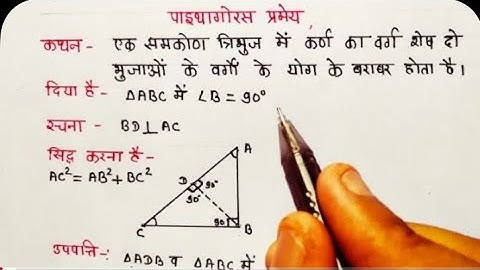 पाइथागोरस प्रमेय
कथन - एक समकोण त्रिभुज में कर्ण का वर्ग शेष दो
भुजाओं के वर्गों के योग के बराबर होता है।
दिया है - △ABC में ∠B = 90°
रचना - BD⊥AC
सिद्ध करना है -
AC² = AB² + BC²
A
D 90°
90°
90°
C B
उपपत्ति -: △ADB व △ABC में